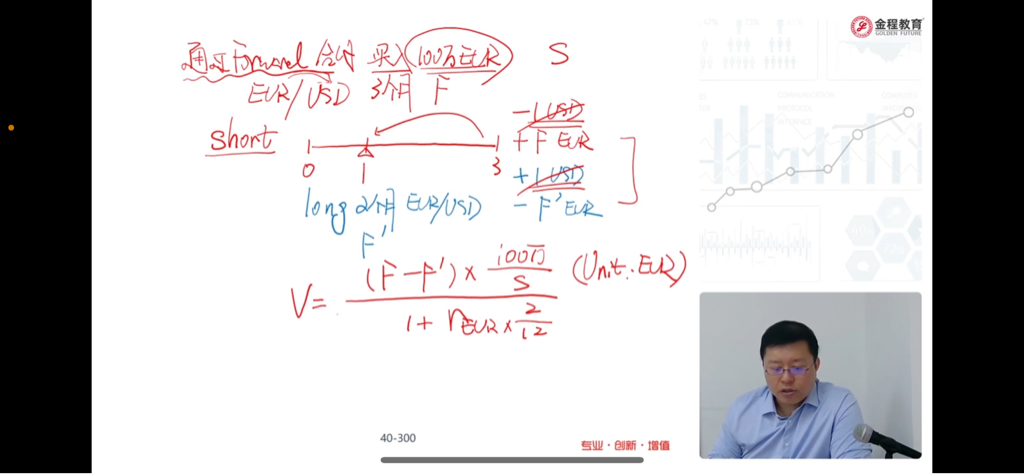 金程教育
GOLDEN FUTURE
通过Forward合约 买入 100万EUR S
EUR/USD 3个月 F
short
-1 USD
+F EUR
0 1 3
+1 USD
-F'EUR
long 2个月 EUR/USD
F'
V= (F-F')× 100万/S (Unit: EUR)
1+ rEUR × 2/12
40-300
专业·创新·增值